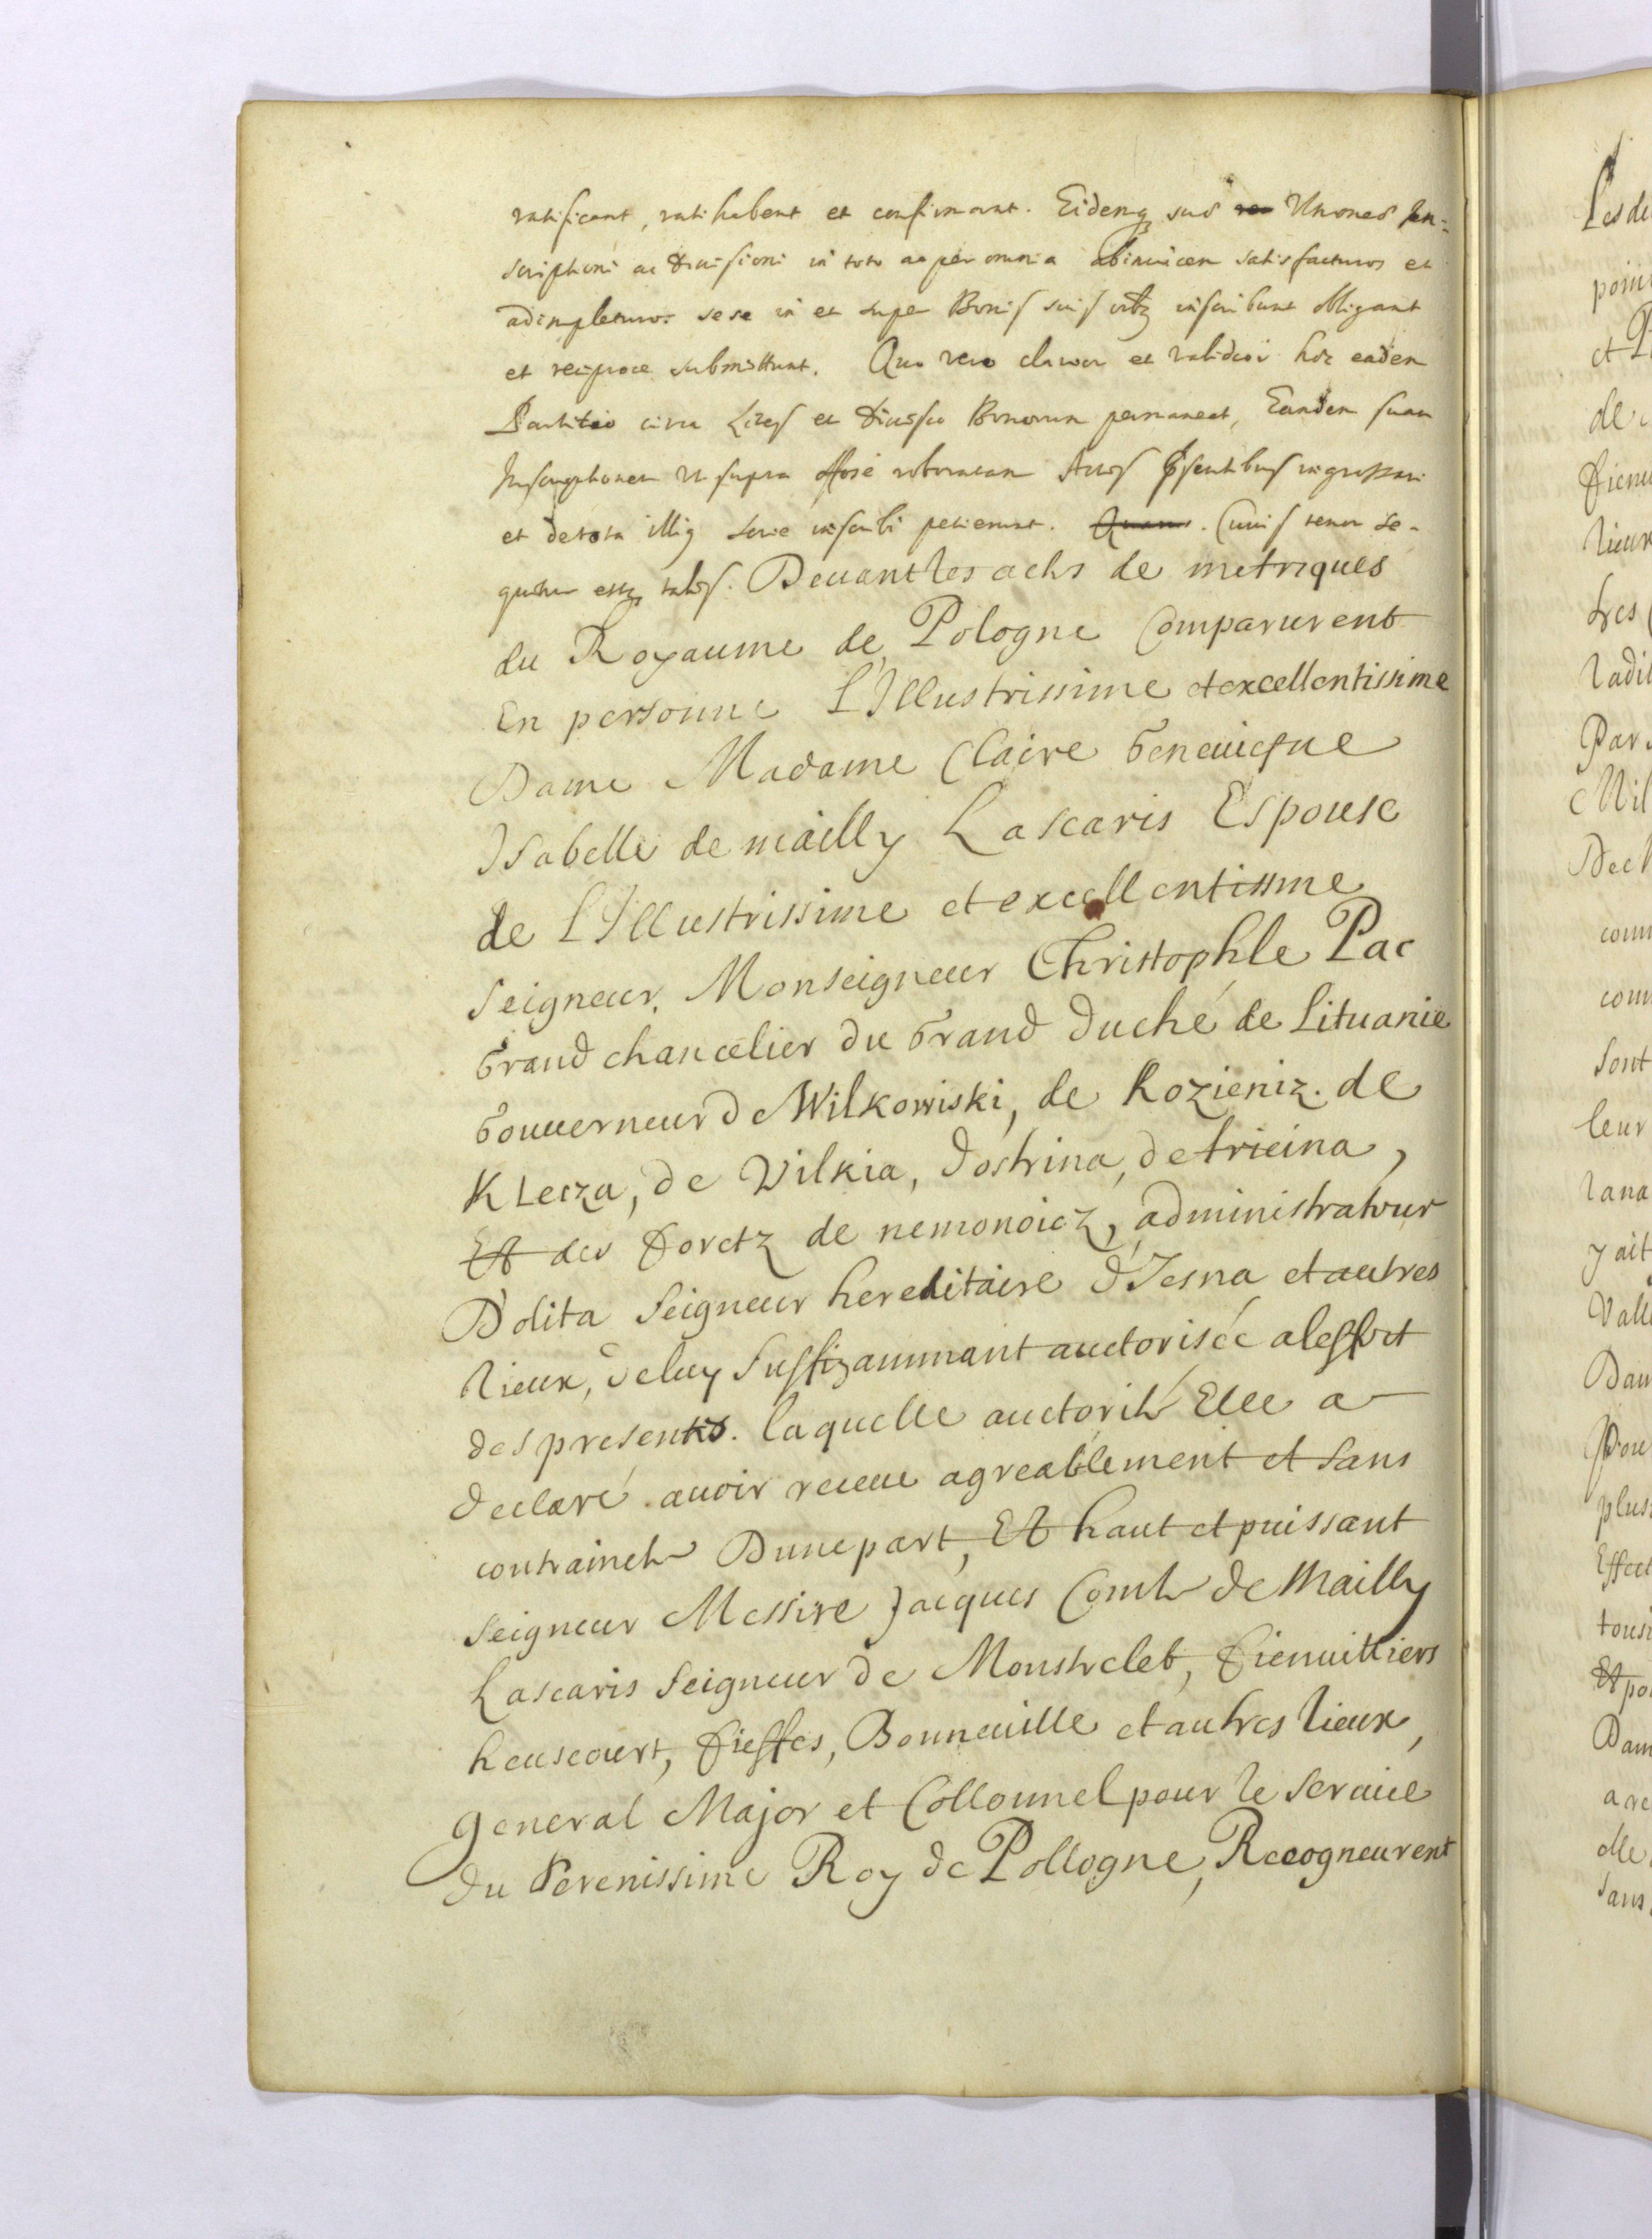 ratificant, ratihabent et confirmant. Eidemq suo Unones In-
scriptioni ac Diuisioni in toto ac per omnia abinuicem satisfacturos et
adimpleturos sese in et super Bonis suis inscribunt obligant
et reciproce submittunt. Quo vero clarior et validior hæc eadem
Partitio circa Lites et Diuisio Bonorum permaneat, Eandem suam
Inscriptionem ut supra roboratam Actis pñsentibus ingrossari
et de tota illiq serie inscribi petierunt. Cuius tenor se-
quitur estq talis. Deuant les acts de metriques
du Royaume de Pologne Comparurent
En personne L'Illustrissime et excellentissime
Dame Madame Claire Geneuiefue
Isabelle de mailly Lascaris Espouse
de L'Illustrissime et excellentissme
Seigneur, Monseigneur Christophle Pac
Grand chancelier du Grand Duché de Lituanie
Gouuerneur de Wilkowiski, de Kozieniz. de
Klecza, de Vilkia, dostrina, de tricina,
Et des foretz de nemonoicz, administrateur
Dolita Seigneur hereditaire d'Jesna et autres
lieux, de luy suffizammant auctorisée a leffect
des presentes. laquelle auctorité Elle a
declaré auoir receue agreablement et sans
contraincte Dune part, Et haut et puissant
Seigneur Messire Jacques Comte de Mailly
Lascaris Seigneur de Monstrelet, fienuilliers
heuscourt, fieffes, Bonneuille et autres lieux,
general Major et Collonnel pour le seruice
du Serenissime Roy de Pollogne, Recogneurent